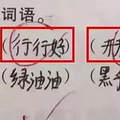 词语。
(行行好)(
(绿油油)(黑